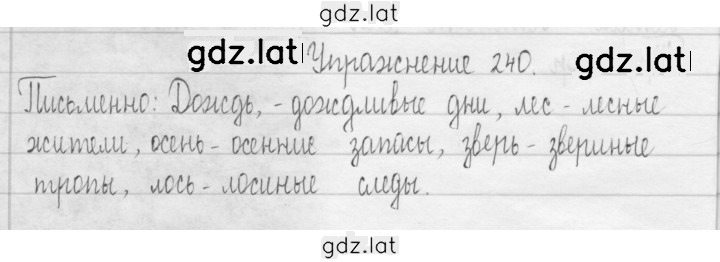 gdz.lat
gdz.lat Упражнение 240. gdz.lat
Письменно: Дождь, - дождливые дни, лес - лесные
жители, осень - осенние запасы, зверь - звериные
тропы, лось - лосиные следы.
gdz.lat